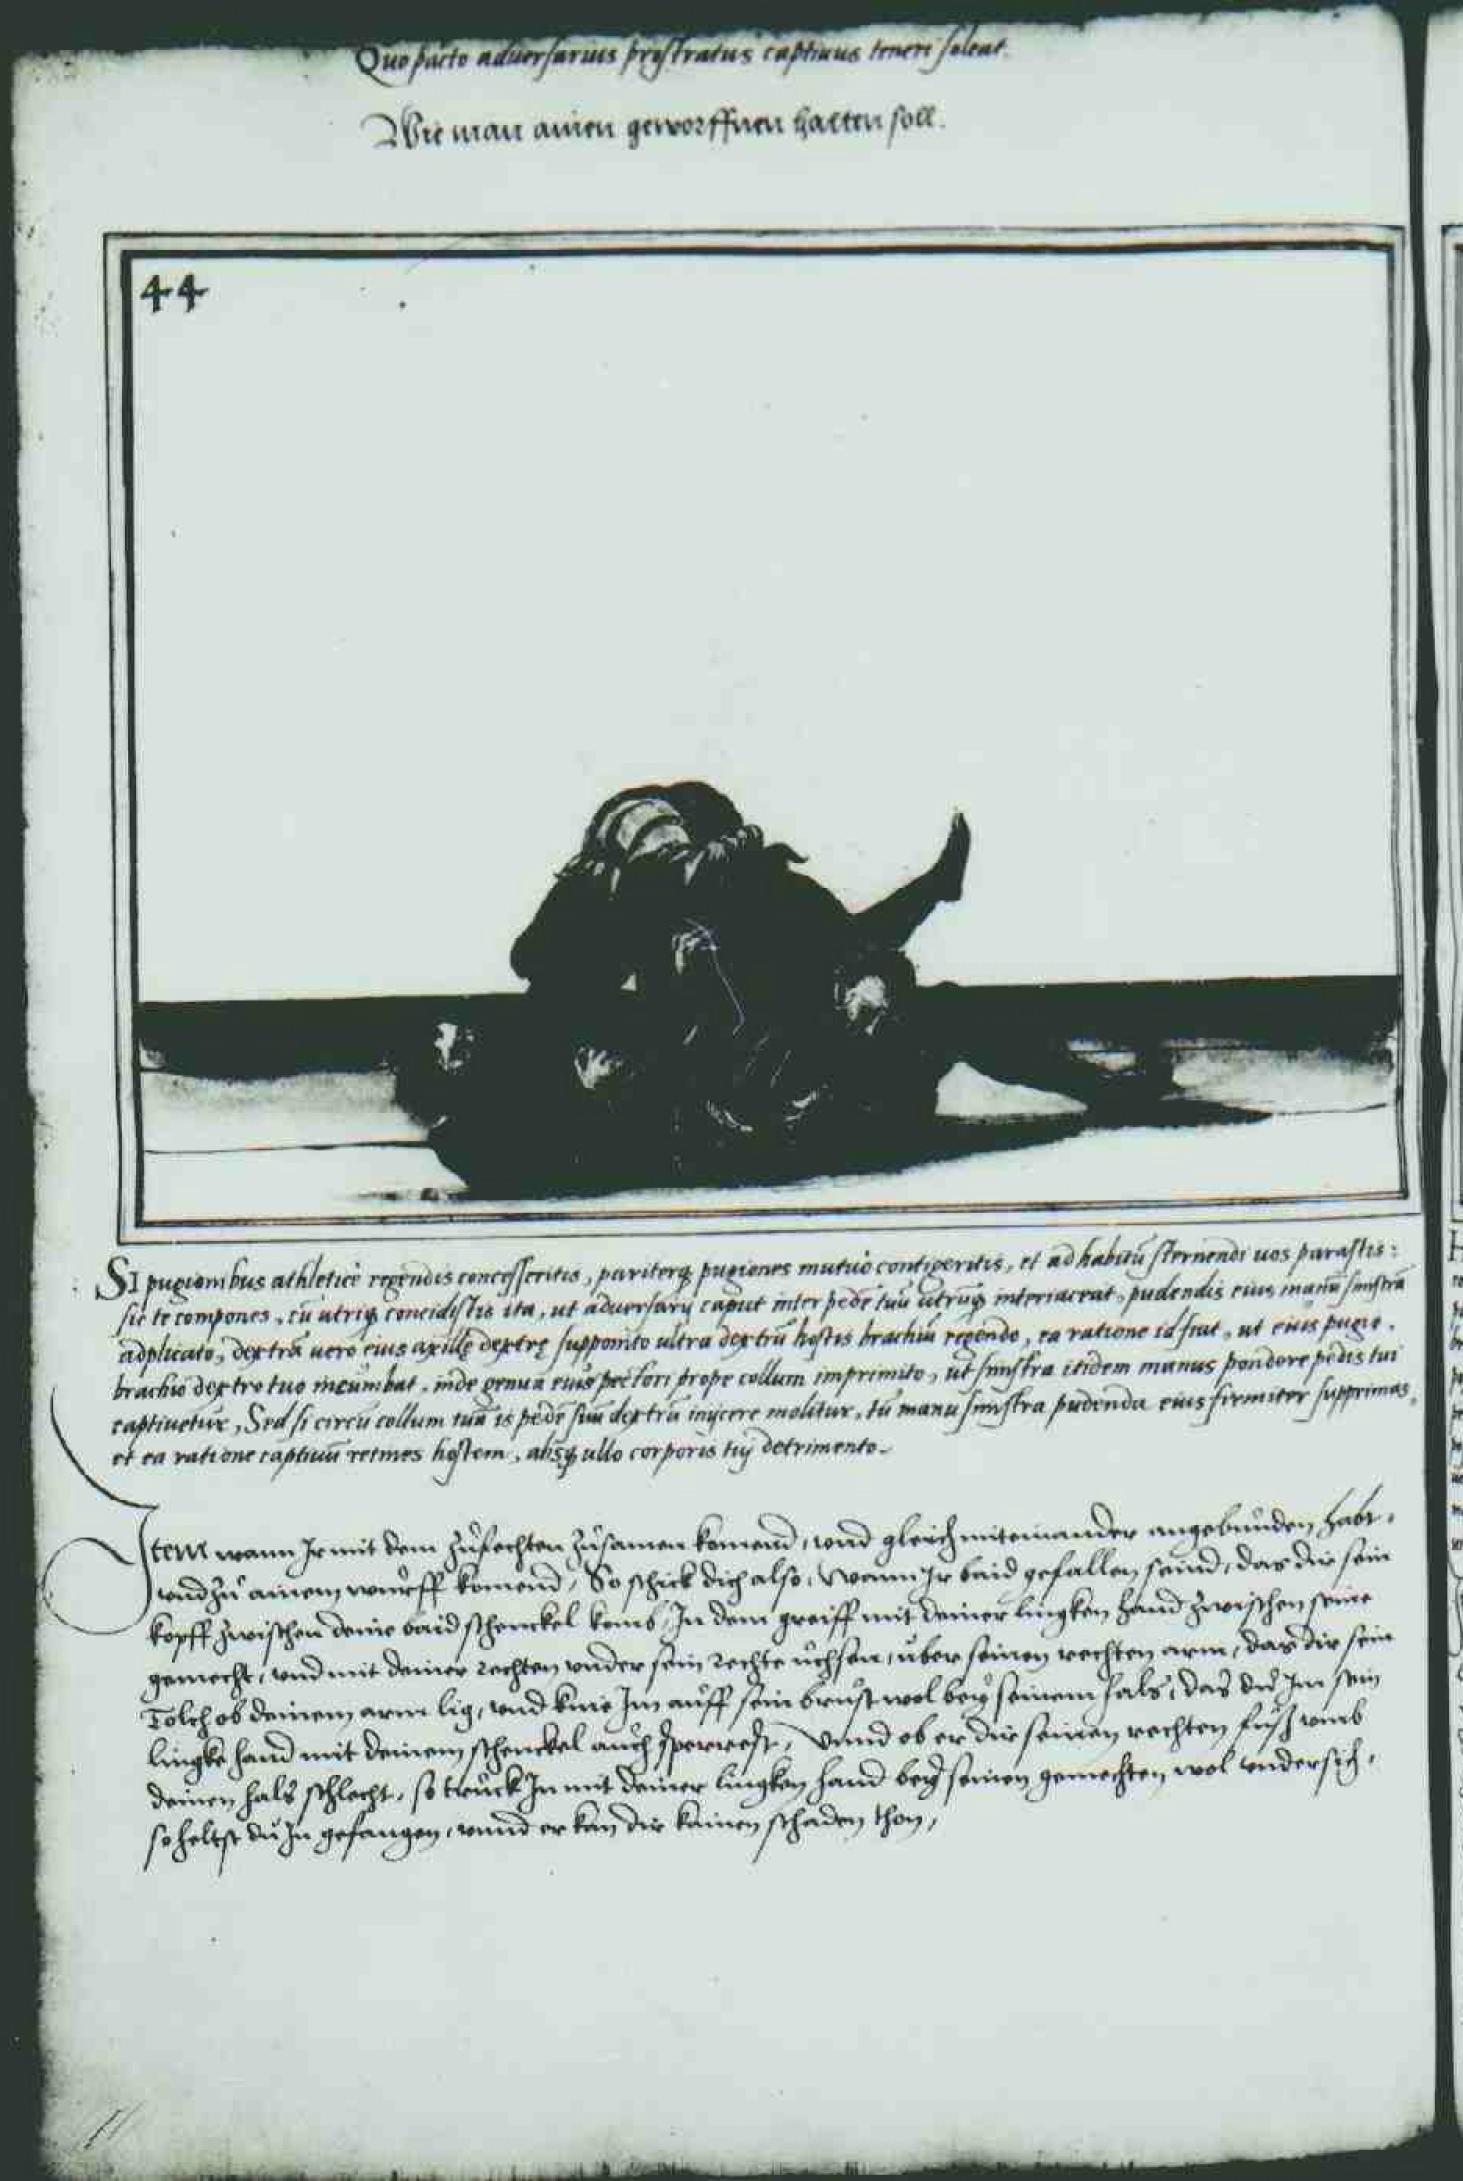 Quo pacto aduersarius prostratus captiuus teneri soleat.
Wie man ainen geworffnen halten soll.
44
SI pugionibus athleticè regendis concesseritis, pariterq̃ pugiones mutuò contigeritis, et ad habitũ sternendi uos parastis:
sic te compones, cũ utriq̃ concidistis ita, ut aduersarij caput inter pedẽ tuũ utrũq̃ interiaceat, pudendis eius manũ sinistrã
adplicato, dextrã uero eius axillę dextrę supponito ultra dextrũ hostis brachiũ regendo, ea ratione id fiat, ut eius pugio,
brachio dextro tuo incumbat, inde genua eius pectori prope collum imprimito, ut sinistra itidem manus pondere pedis tui
captiuetur, Sed si circũ collum tuũ is pedẽ suũ dextrũ inijcere molitur, tũ manu sinistra pudenda eius firmiter supprimas,
et ea ratione captiuũ retines hostem, absq̃ ullo corporis tuj detrimento.
Item wann Ir mit dem zůfechten zůsamen komend, vnd gleich miteinander angebunden habt,
vnd zů ainem wurff komend, So schick dich also, Wann Ir baid gefallen seind, das dir sein
kopff zwischen deine baid schenckel komb, In dem greiff mit deiner lingken hand zwischen seine
gemecht, vnd mit deiner rechten vnder sein rechte ůchsen, ůber seinen rechten arm, das dir sein
Tolch ob deinem arm lig, vnd knie Im auff sein brust wol bey seinem hals, das du Im sein
lingke hand mit deinem schenckel auch sperrest, Vnnd ob er dir seinen rechten fuß vmb
deinen hals schlecht, so truck In mit deiner lingken hand bey seinen gemechten wol vndersich,
so heltst du In gefangen, vnnd er kan dir kainen schaden thon,